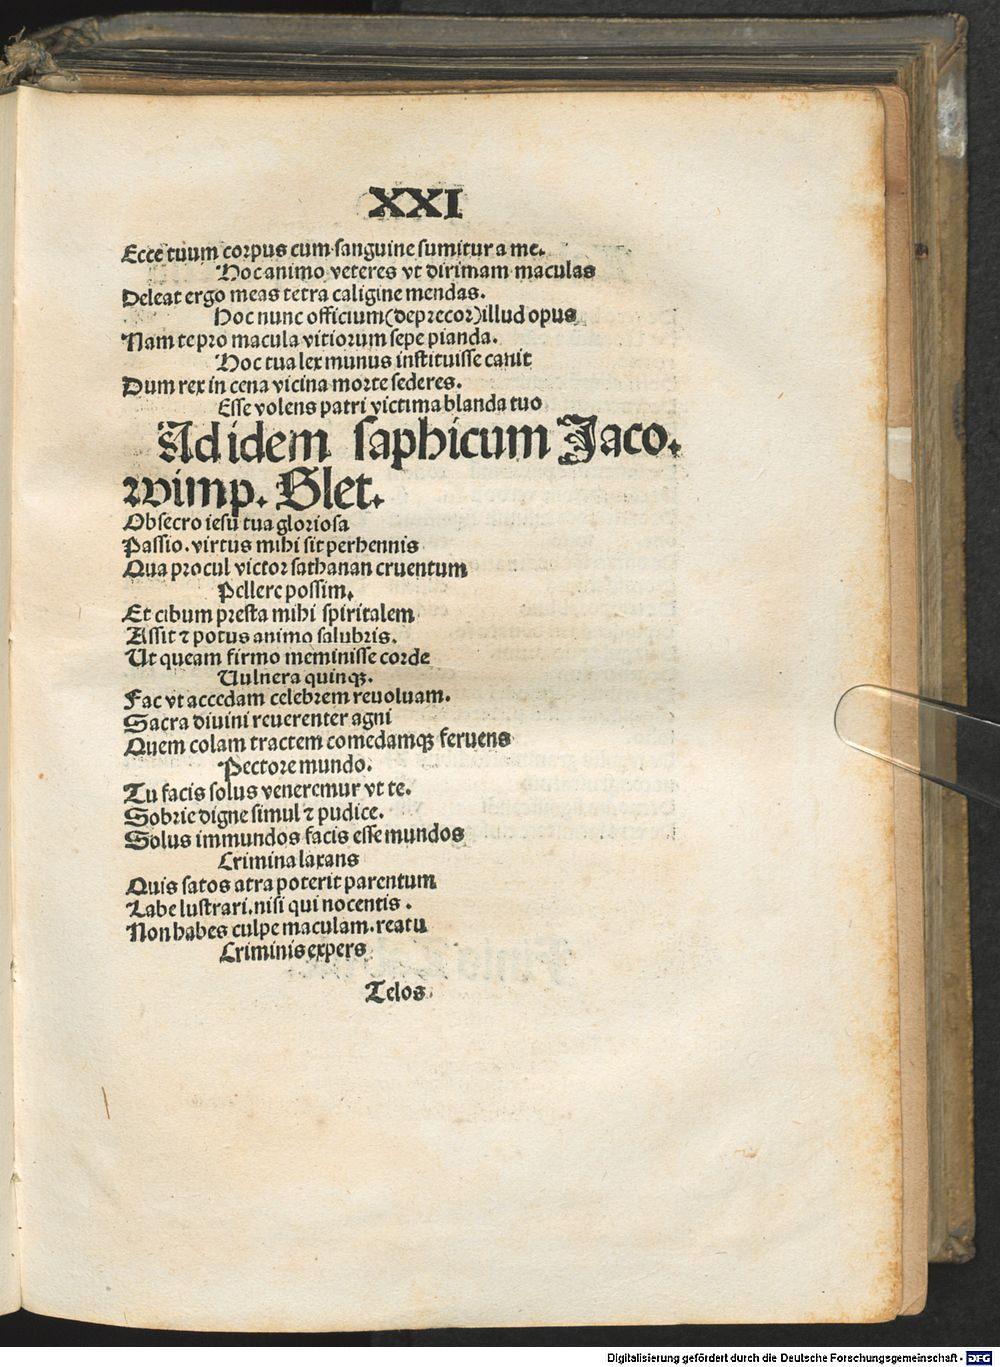 XXI
Ecce tuum corpus cum sanguine sumitur a me.
Hoc animo veteres vt dirimam maculas
Deleat ergo meas tetra caligine mendas.
Hoc nunc officium (deprecor) illud opus
Nam te pro macula vitiorum sepe pianda.
Hoc tua lex munus instituisse canit
Dum rex in cena vicina morte sederes.
Esse volens patri victima blanda tuo
Ad idem saphicum Jaco.
wimp. Slet.
Obsecro iesu tua gloriosa
Passio. virtus mihi sit perhennis
Qua procul victor sathanan cruentum
Pellere possim.
Et cibum presta mihi spiritalem
Assit ⁊ potus animo salubris.
Ut queam firmo meminisse corde
Uulnera quinqꝫ.
Fac vt accedam celebrem reuoluam.
Sacra diuini reuerenter agni
Quem colam tractem comedamqꝫ feruens
Pectore mundo.
Tu facis solus veneremur vt te.
Sobrie digne simul ⁊ pudice.
Solus immundos facis esse mundos
Crimina laxans
Quis satos atra poterit parentum
Labe lustrari. nisi qui nocentis.
Non habes culpe maculam. reatu
Criminis expers
Telos
Digitalisierung gefördert durch die Deutsche Forschungsgemeinschaft - DFG